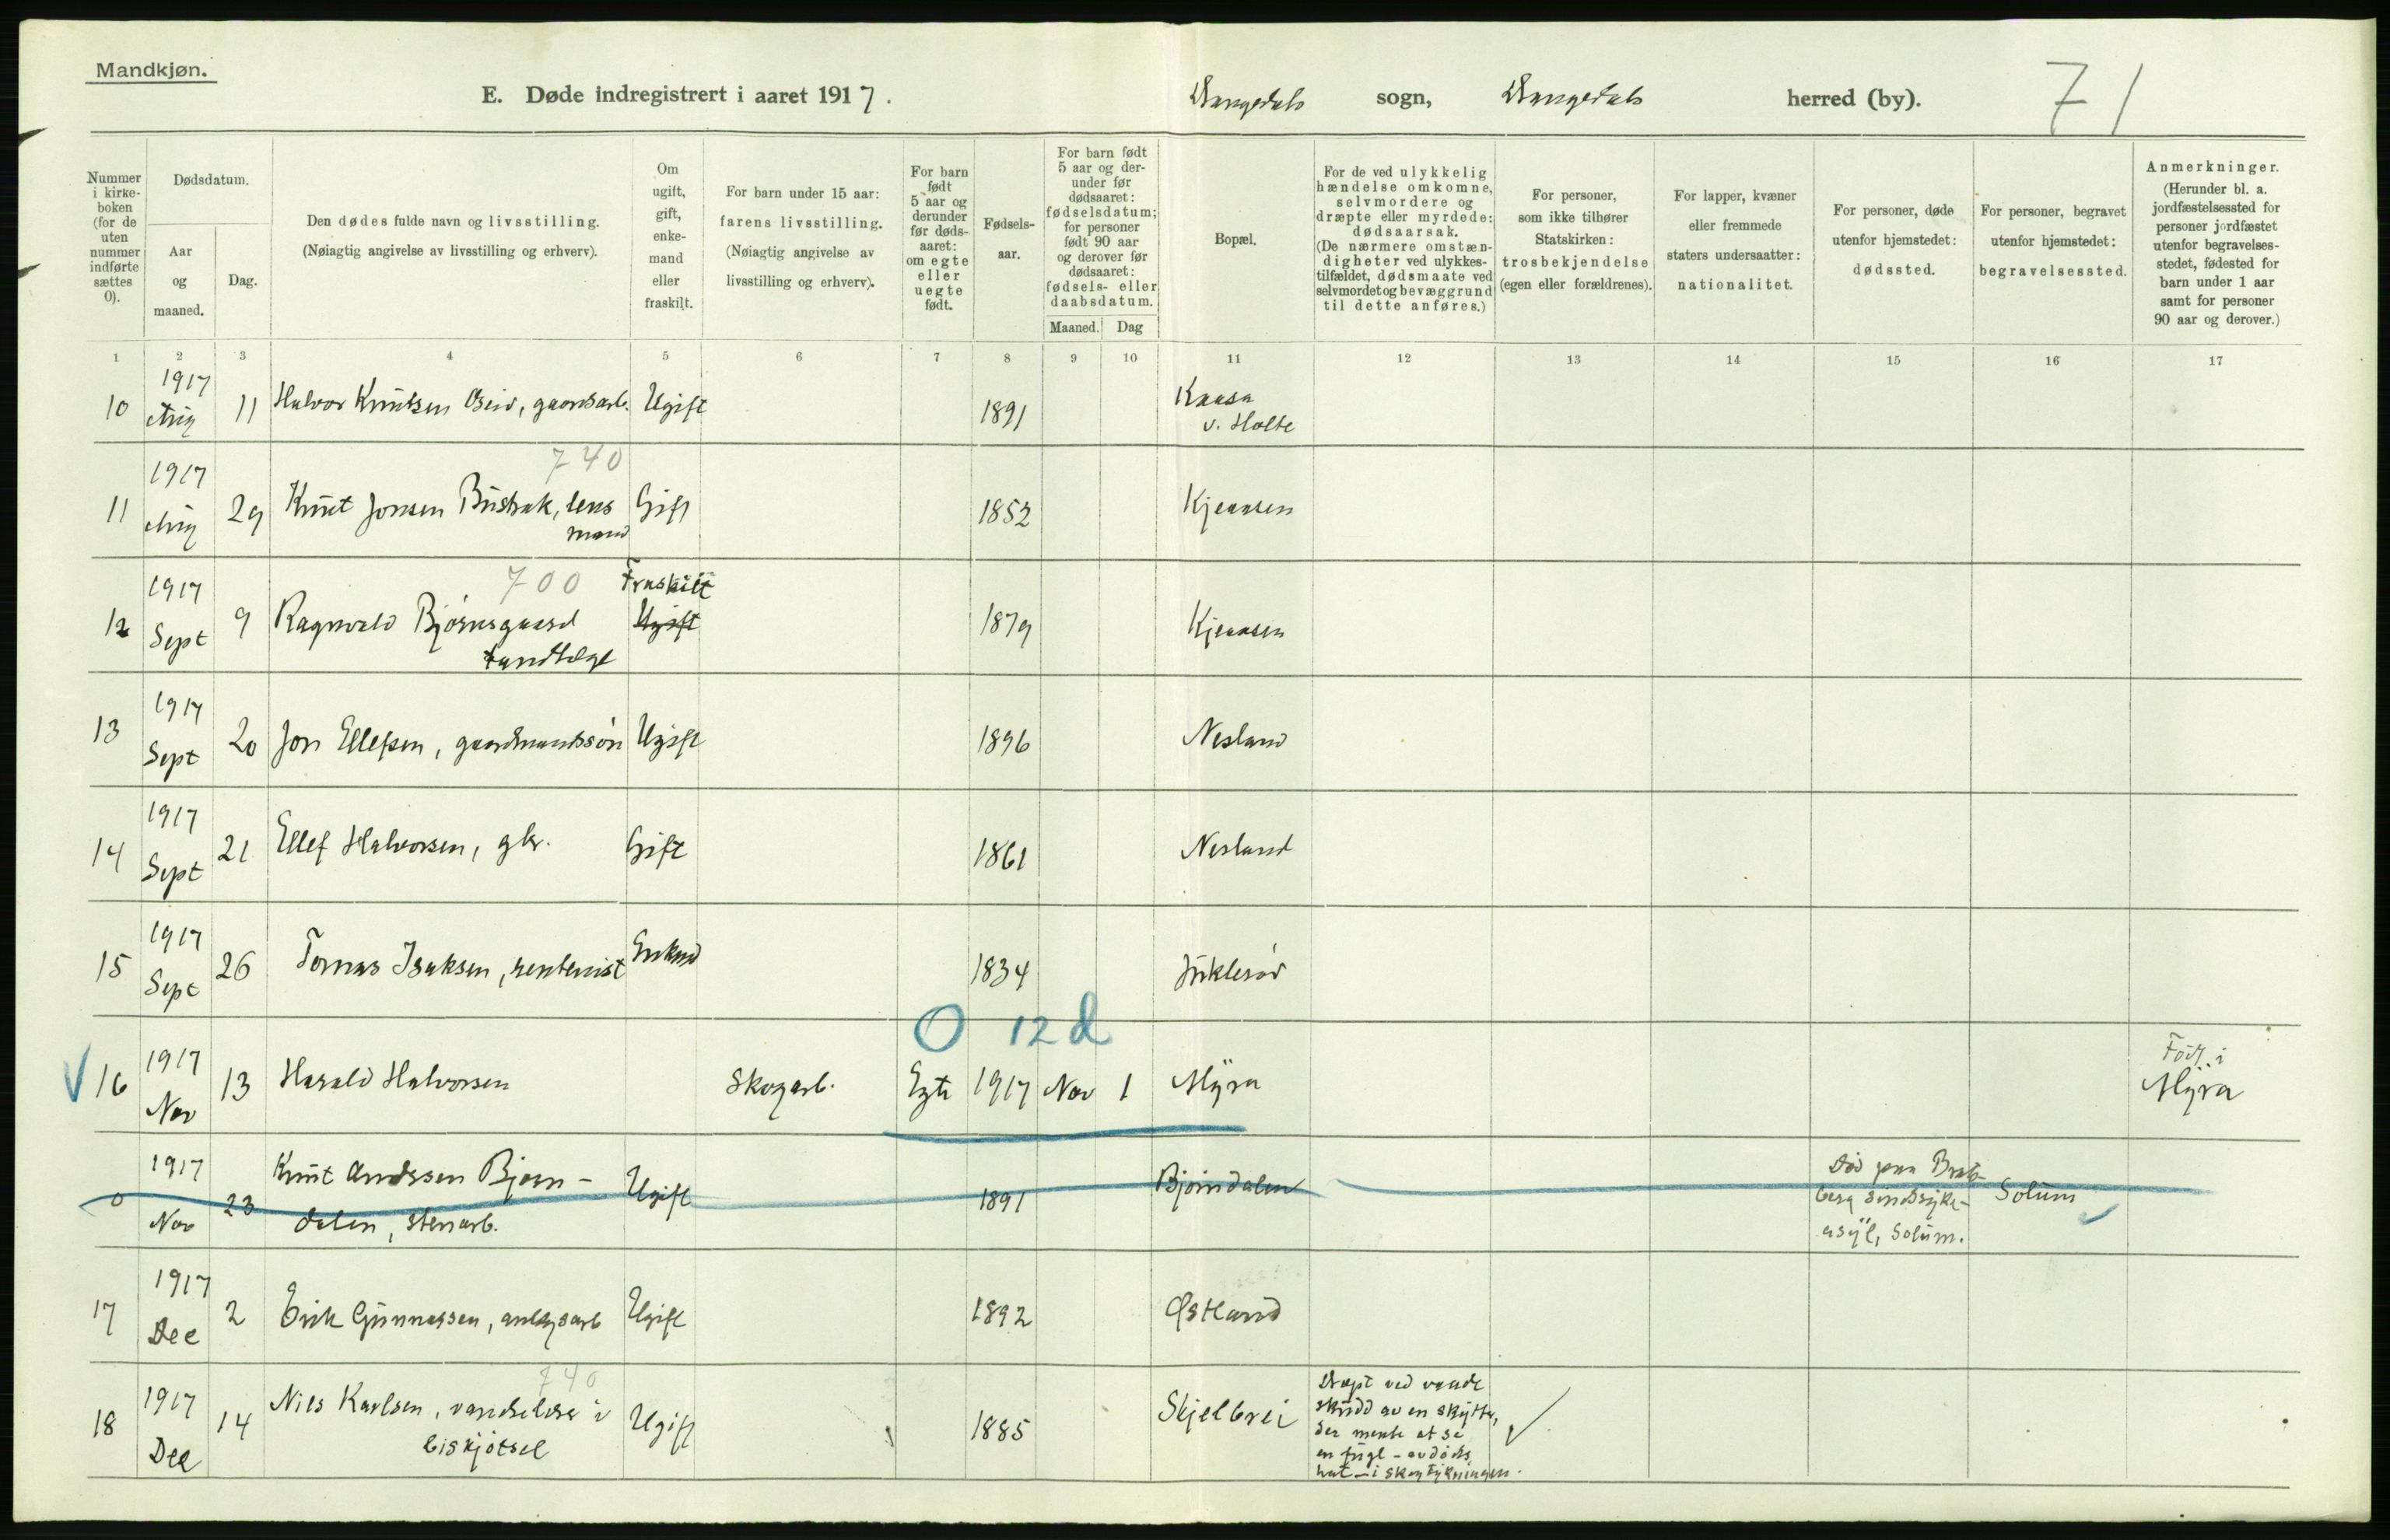 Mandkjøn.
E. Døde indregistrert i aaret 1917. Drangedals sogn, Drangedals herred (by). 71
Nummer i kirke-boken (for de uten nummer indførte sættes 0).
Dødsdatum.
Aar og maaned.
Dag.
Den dødes fulde navn og livsstilling.
(Nøiagtig angivelse av livsstilling og erhverv).
Om ugift, gift, enke-mand eller fraskilt.
For barn under 15 aar: farens livsstilling.
(Nøiagtig angivelse av livsstilling og erhverv).
For barn født 5 aar og derunder før døds-aaret: om egte eller uegte født.
Fødsels-aar.
For barn født 5 aar og der-under før dødsaaret: fødselsdatum; for personer født 90 aar og derover før dødsaaret: fødsels- eller daabsdatum.
Maaned. Dag
Bopæl.
For de ved ulykkelig hændelse omkomne, selvmordere og dræpte eller myrdede: dødsaarsak.
(De nærmere omstæn-digheter ved ulykkes-tilfældet, dødsmaate ved selvmordet og bevæggrund til dette anføres.)
For personer, som ikke tilhører Statskirken: trosbekjendelse (egen eller forældrenes).
For lapper, kvæner eller fremmede staters undersaatter: nationalitet.
For personer, døde utenfor hjemstedet: dødssted.
For personer, begravet utenfor hjemstedet: begravelsessted.
Anmerkninger.
(Herunder bl. a. jordfæstelsessted for personer jordfæstet utenfor begravelses-stedet, fødested for barn under 1 aar samt for personer 90 aar og derover.)
1 2 3 4 5 6 7 8 9 10 11 12 13 14 15 16 17
10 1917 Aug 11 Halvor Knutsen, gaardsarb. Ugift 1891 Kaasa v. Holte
740
11 1917 Aug 29 Knut Jonsen Bustrak, lensmand Gift 1852 Kjeaasen
700 Fraskilt
12 1917 Sept 9 Ragnvald Bjørnsgaard tandlæge Ugift 1879 Kjeaasen
13 1917 Sept 20 Jon Ellefsen, gaardmandssøn Ugift 1896 Nesland
14 1917 Sept 21 Ellef Halvorsen, gbr. Gift 1861 Nesland
15 1917 Sept 26 Tomas Isaksen, rentenist Enkmd 1834
0 12 d
16 1917 Nov 13 Harald Halvorsen Skogarb. Egte 1917 Nov 1 Myra Født i Myra
0 1917 Nov 23 Knut Andssen Bjørn-
dalen, stenarb. Ugift 1891 Bjørndalen Død paa Brats-
berg sindssyke-
asyl, Solum. Solum
17 1917 Dec 2 Erik Gunnarsen, anlægsarb Ugift 1892 Østland
740
18 1917 Dec 14 Nils Karlsen, Ugift 1885 Skjelbrei Dræpt ved vaade
skudd av en skytter,
der mente at se
en fugl - avdødes
hat - i skogtykningen.